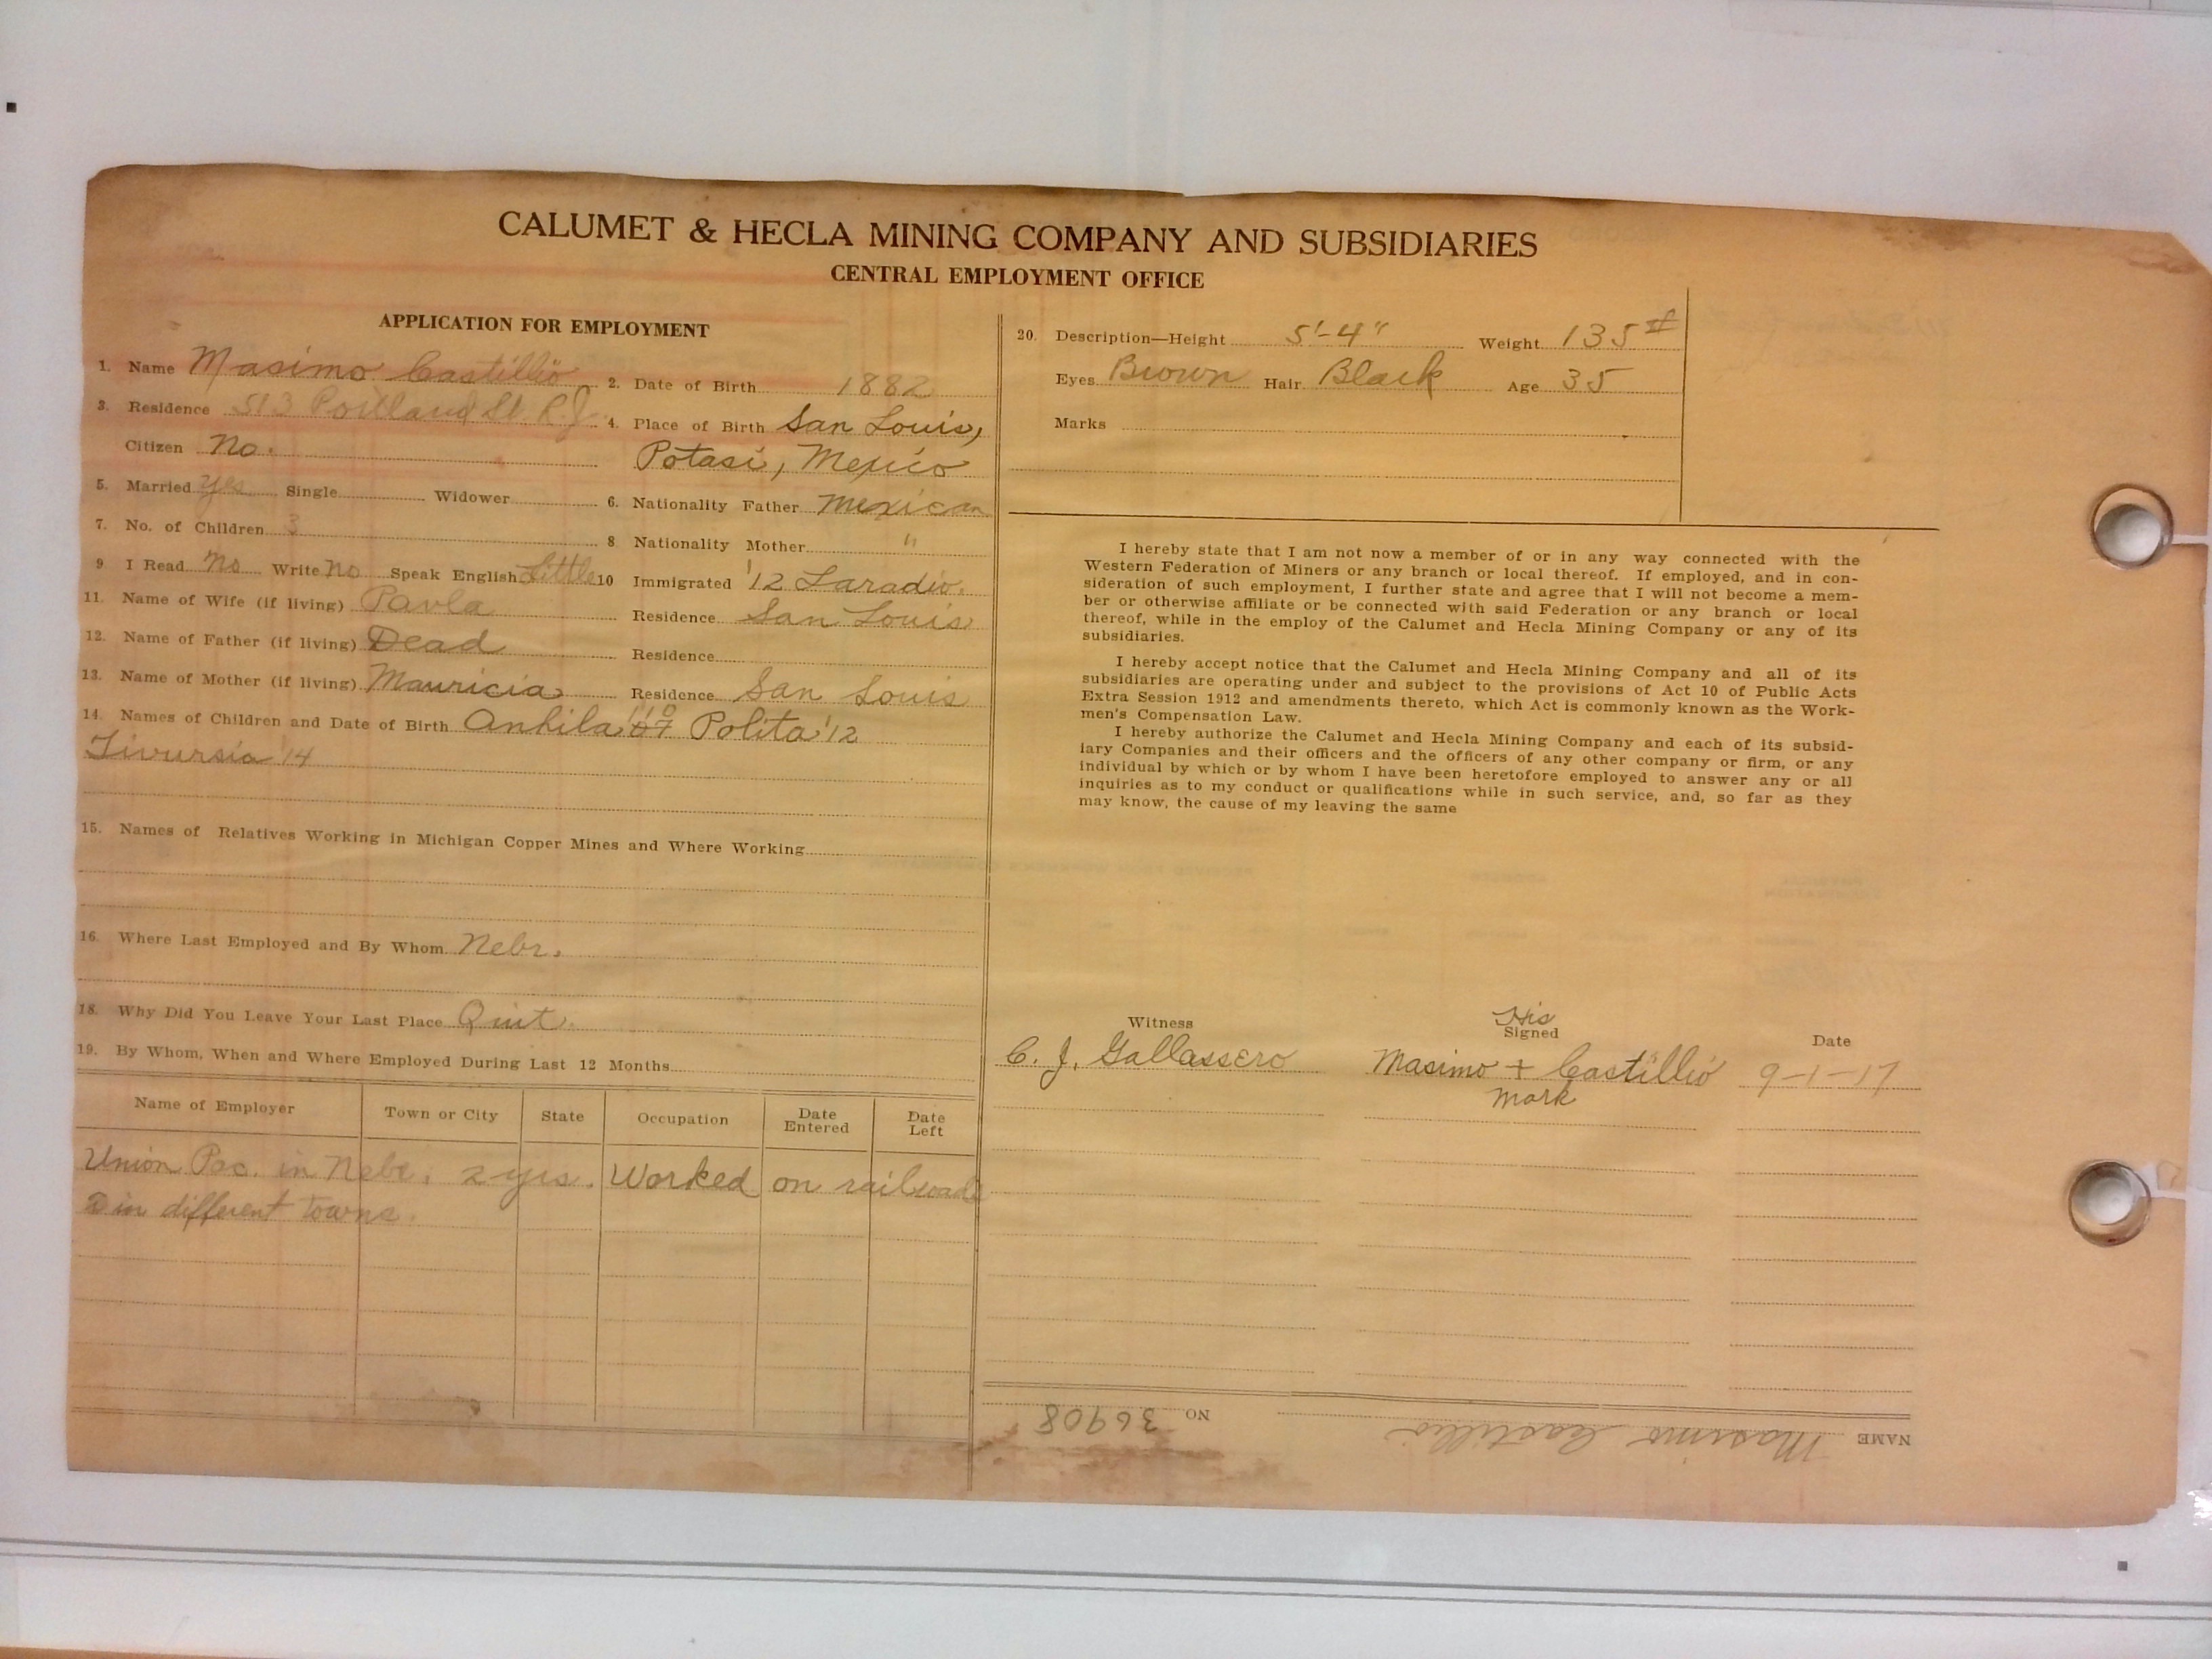 CALUMET & HECLA MINING COMPANY AND SUBSIDIARIES
CENTRAL EMPLOYMENT OFFICE
APPLICATION FOR EMPLOYMENT
1. Name Masimo Castillio 2. Date of Birth 1882
3. Residence 513 Portland St. R.J. 4. Place of Birth San Louis,
Citizen No. Potasi, Mexico
5. Married Yes Single Widower 6. Nationality Father Mexican
7. No. of Children 3 8 Nationality Mother "
9 I Read No Write No Speak English Little 10 Immigrated '12 Laradio.
11. Name of Wife (if living) Pavla Residence San Louis
12. Name of Father (if living) Dead Residence
13. Name of Mother (if living) Mauricia Residence San Louis
14. Names of Children and Date of Birth Anhila '10 07 Polita '12
Tivursia '14
15. Names of Relatives Working in Michigan Copper Mines and Where Working
16. Where Last Employed and By Whom Nebr.
18. Why Did You Leave Your Last Place Quit.
19. By Whom, When and Where Employed During Last 12 Months
Name of Employer Town or City State Occupation Date Entered Date Left
Union Pac. in Nebr. 2 yrs. Worked on railroads
in different towns.
20. Description—Height 5'-4" Weight 135#
Eyes Brown Hair Black Age 35
Marks
I hereby state that I am not now a member of or in any way connected with the
Western Federation of Miners or any branch or local thereof. If employed, and in con-
sideration of such employment, I further state and agree that I will not become a mem-
ber or otherwise affiliate or be connected with said Federation or any branch or local
thereof, while in the employ of the Calumet and Hecla Mining Company or any of its
subsidiaries.
I hereby accept notice that the Calumet and Hecla Mining Company and all of its
subsidiaries are operating under and subject to the provisions of Act 10 of Public Acts
Extra Session 1912 and amendments thereto, which Act is commonly known as the Work-
men's Compensation Law.
I hereby authorize the Calumet and Hecla Mining Company and each of its subsid-
iary Companies and their officers and the officers of any other company or firm, or any
individual by which or by whom I have been heretofore employed to answer any or all
inquiries as to my conduct or qualifications while in such service, and, so far as they
may know, the cause of my leaving the same
His
Witness Signed Date
C. J. Gallassero Masimo + Castillio 9-1-17
Mark
NAME Masimo Castillio NO 36908